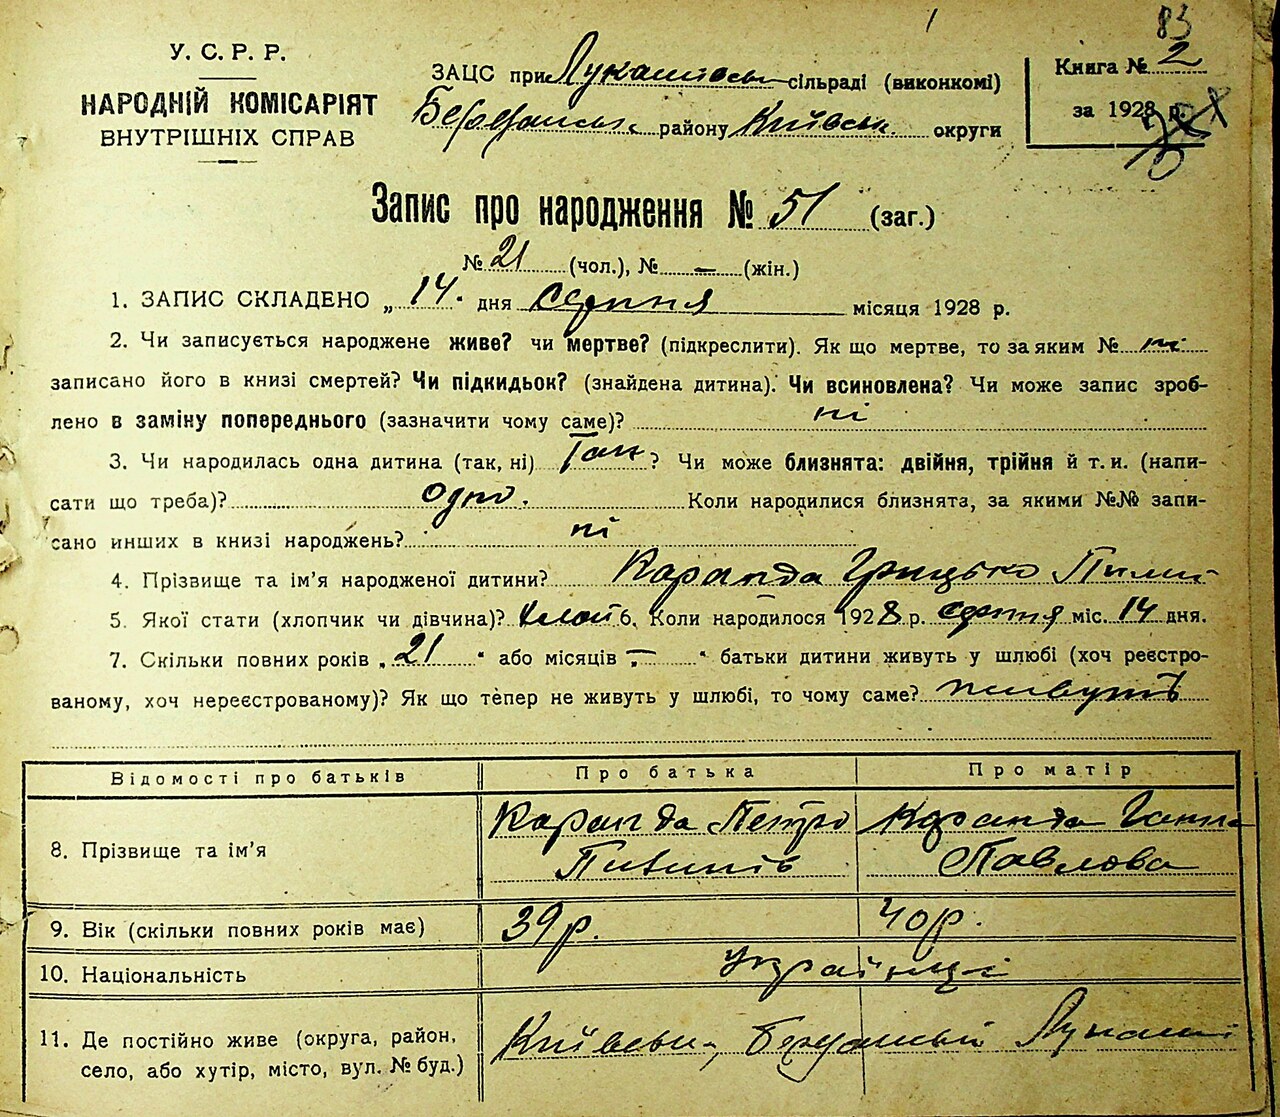 83
У. С. Р. Р.
НАРОДНІЙ КОМІСАРІЯТ
ВНУТРІШНІХ СПРАВ
ЗАЦС при Лукашівськ сільраді (виконкомі)
району Київськ. округи
Книга № 2
за 1928 р.
Запис про народження № 51 (заг.)
№ 21 (чол.), № — (жін.)
1. ЗАПИС СКЛАДЕНО „ 14 " дня серпня місяця 1928 р.
2. Чи записується народжене живе? чи мертве? (підкреслити). Як що мертве, то за яким № ні
записано його в книзі смертей? Чи підкидьок? (знайдена дитина). Чи всиновлена? Чи може запис зроб-
лено в заміну попереднього (зазначити чому саме)? ні
3. Чи народилась одна дитина (так, ні) Так ? Чи може близнята: двійня, трійня й т. и. (напи-
сати що треба)? одно. Коли народилися близнята, за якими №№ запи-
сано инших в книзі народжень? ні
4. Прізвище та ім'я народженої дитини? Каранда Грицько
5. Якої стати (хлопчик чи дівчина)? хлоп 6. Коли народилося 1928 р. серпня міс. 14 дня.
7. Скільки повних років „ 21 " або місяців „ — " батьки дитини живуть у шлюбі (хоч реєстро-
ваному, хоч нереєстрованому)? Як що тепер не живуть у шлюбі, то чому саме? живуть
Відомості про батьків Про батька Про матір
8. Прізвище та ім'я Каранда Петро Каранда Ганна
Павлова
9. Вік (скільки повних років має) 39 р. 40 р.
10. Національність Українці
11. Де постійно живе (округа, район,
село, або хутір, місто, вул. № буд.)